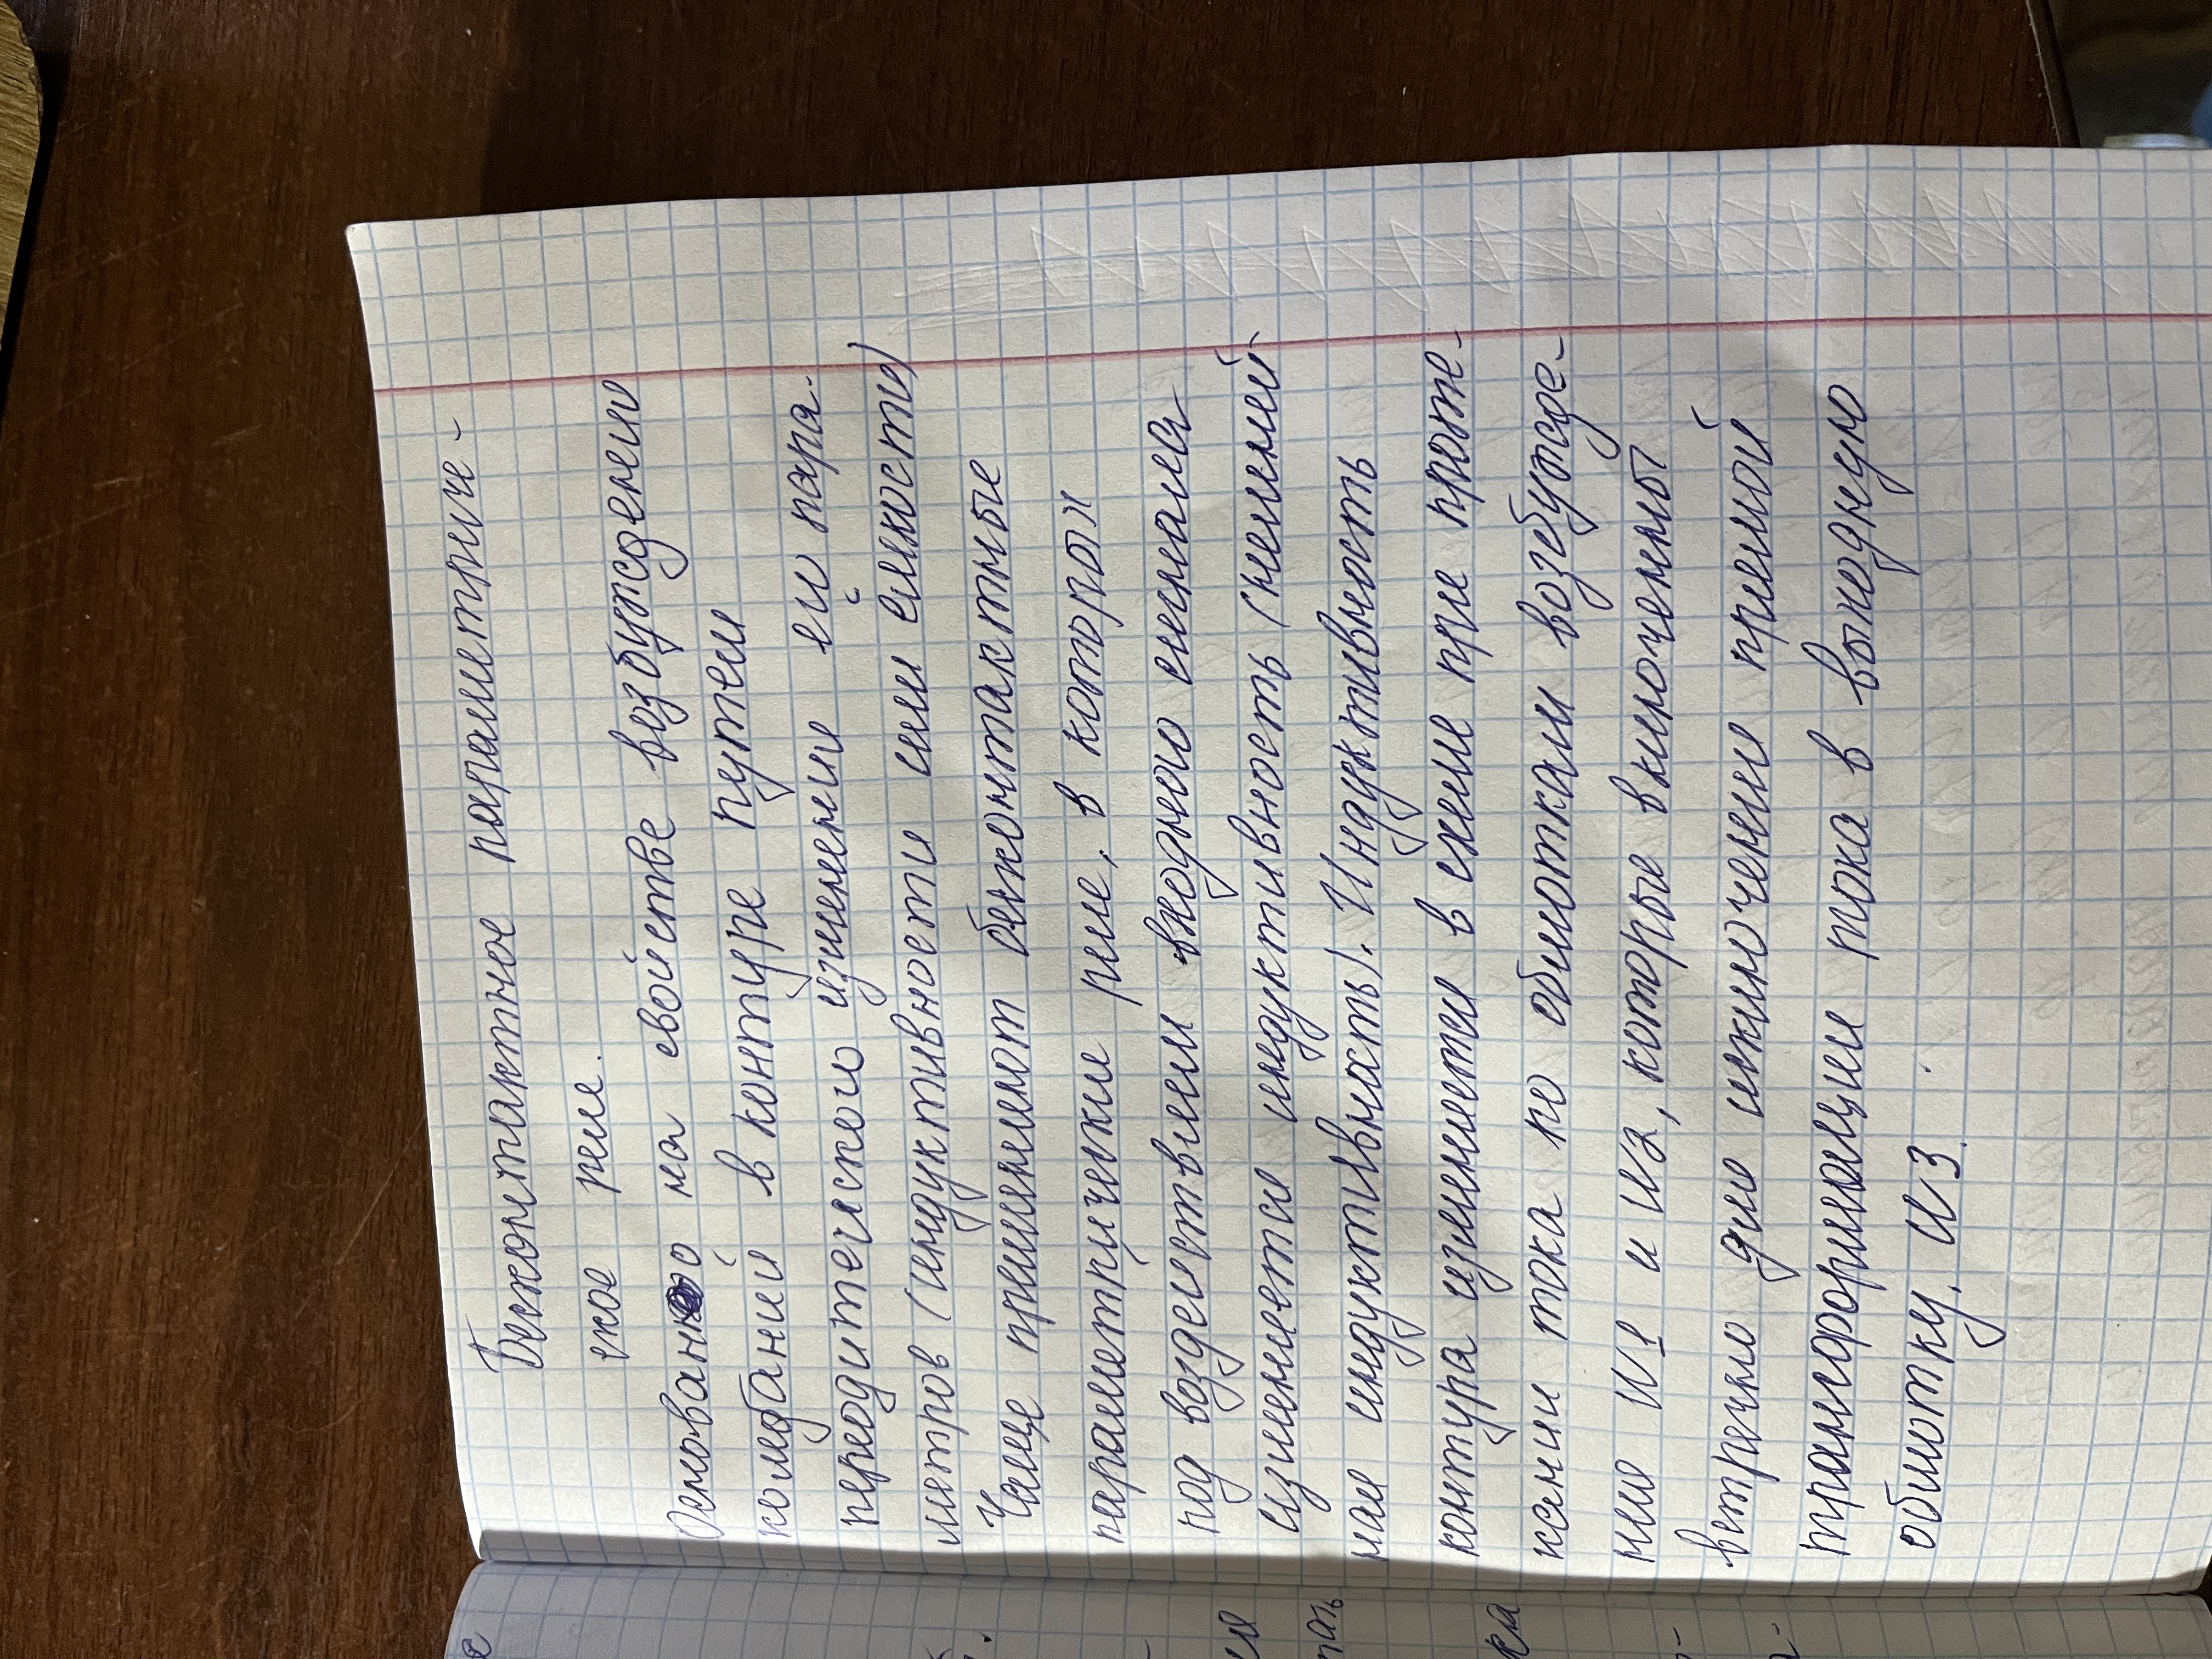 Бесконтактное параметриче-
ское реле.
Основано на свойстве возбуждении
колебаний в контуре путем
переодитеского изменение его пара-
метров (индуктивности или ёмкости)
Чаще применяют бесконтактные
параметрические реле, в которых
под воздействием входного сигнала
изменяется индуктивность (нелиней
ная индуктивность). Индуктивность
контура изменяется в схеме при проте-
кании тока по обмоткам возбужде-
нию W1 и W2, которые включенны
встречно для исключение прямой
трансформации тока в выходную
обмотку. W3.